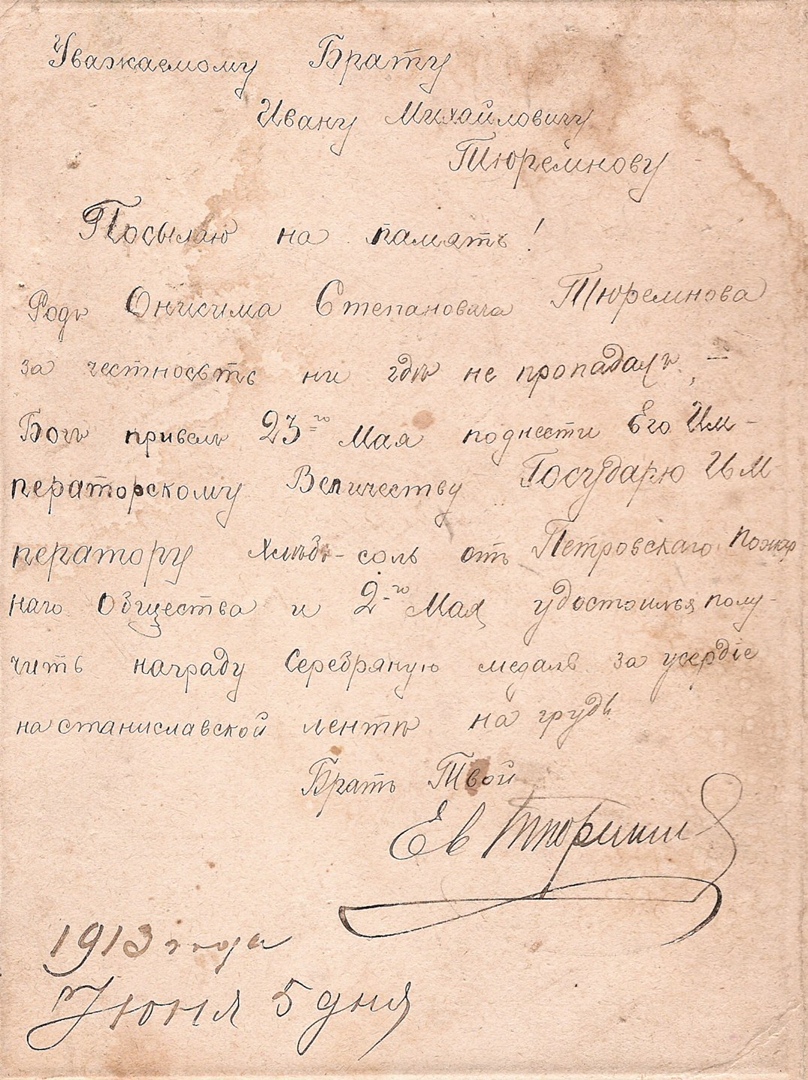 Уважаемому Брату
Ивану Михайловичу
Тюремнову
Посылаю на память!
Родъ Онисима Степановича Тюремнова
за честносьть ни гдѣ не пропадалъ, –
Богъ привелъ 23-го Мая поднести Его Им-
ператорскому Величеству Государю Им-
ператору Хлѣбъ-соль отъ Петровскаго Пожар
наго Общества и 2-го Мая удостоился полу-
чить награду Серебряную медаль за усердіе
на станиславской лентѣ на грудь
Братъ Твой
Ев
1913 года
Июня 5 дня